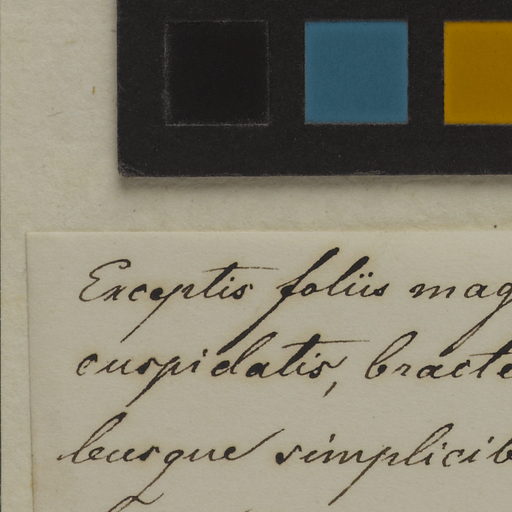 Exceptis foliis mag
cuspidatis, bracte
busque simplicib